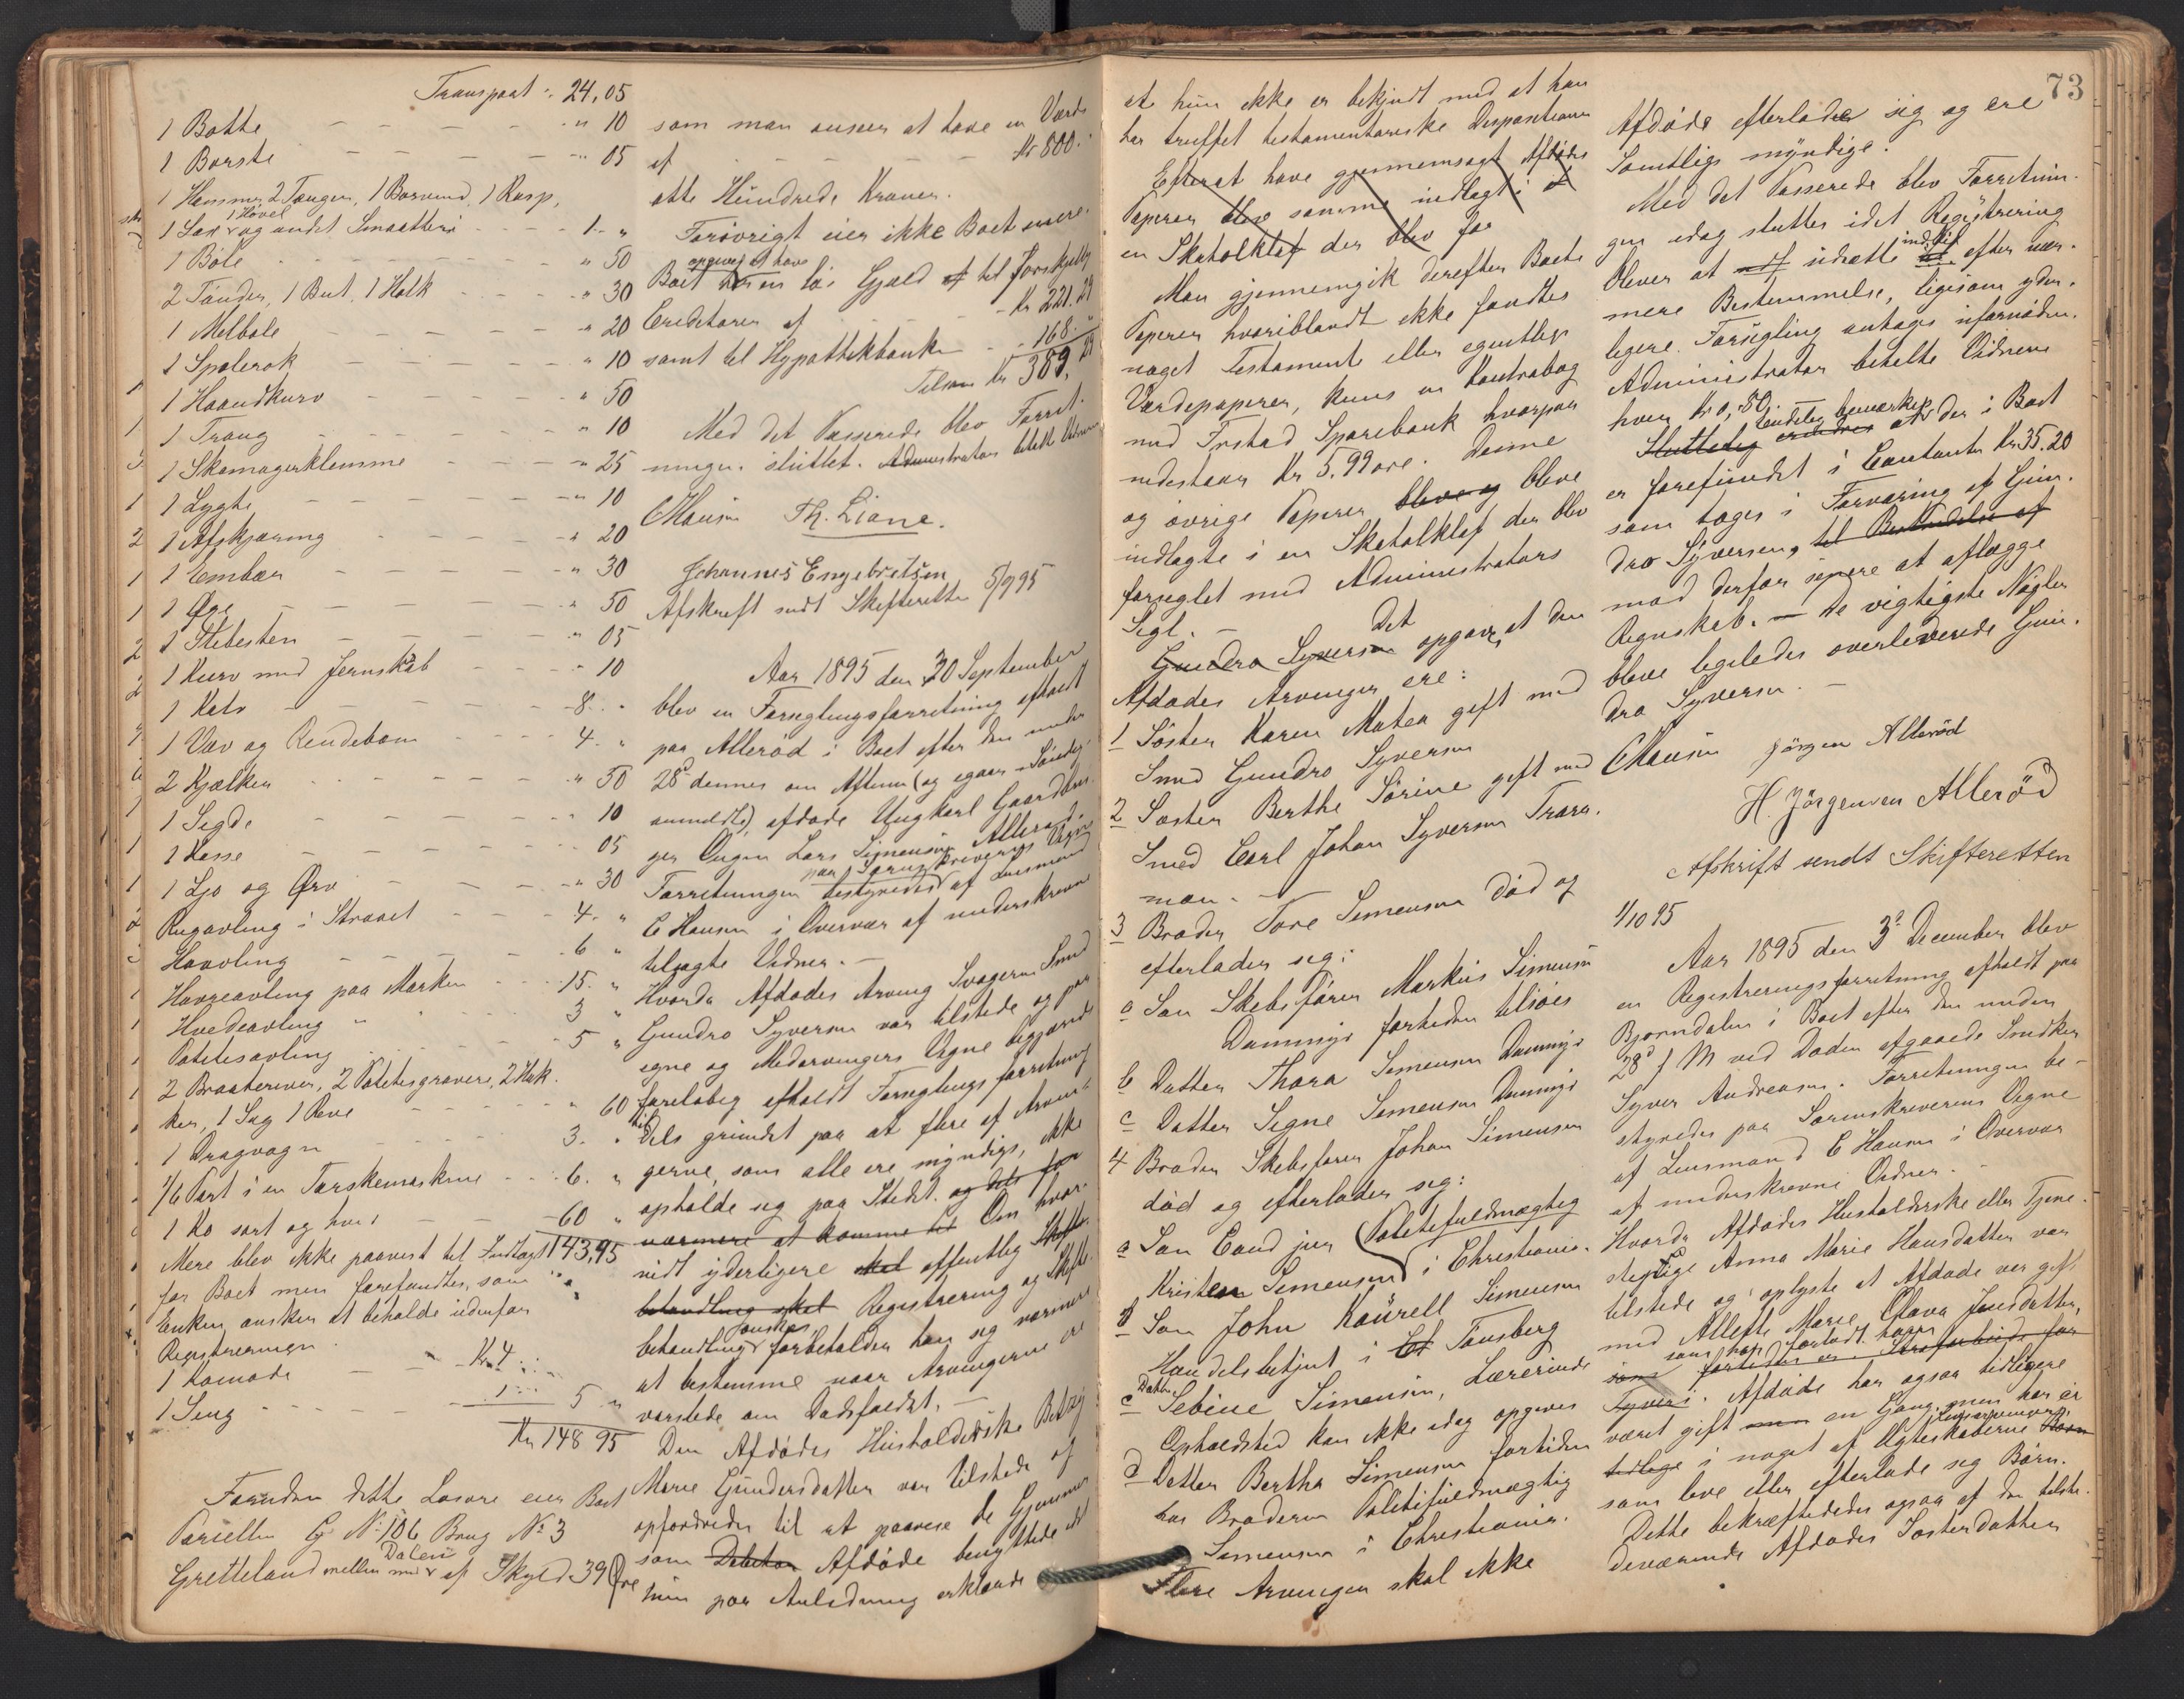 Transport :. 24,05
1 Bøtte - - - " 10
1 Børste - - - " 05
1 Hammer, 2 Tænger, 1 Borvind, 1 Rasp,
1 Sax 1 Høvel og andet Smaatteri - - 1. "
1 Bøle - - - " 50
2 Tønder, 1 But, 1 Holk - - " 30
1 Melbøle - - - " 20
1 Spolerok - - - " 10
1 Haandkurv - - - " 50
1 Traug - - - " 10
1 Skomagerklemme - - - " 25
1 Lygte - - - " 10
1 Afskjæring - - - " 20
1 Embar - - - " 30
1 Øxe - - - " 50
1 Slibesten - - - " 05
1 Kurv med Jernskab - - - " 10
1 Kalv - - - 8. "
1 Væv og Rendebom - - - 4. "
2 Kjælker - - - " 50
1 Segde - - - " 10
1 Kasse - - - " 05
1 Ljo og Orv - - - " 30
Rugavling i Straaet - - - 4. "
Høavling - - - 6 "
Havreavling paa Marken - - - 15. "
Hvedeavling " - - 3 "
Potetesavling - - - 5 "
2 Braateriver, 2 Potetesgravere, 2 Hak-
ker, 1 Sag 1 Rive - - - " 60
1 Dragvogn - - - 3. "
1/6 Part i en Tærskemaskine - - 6. "
1 Ko sort og hvid - - 60 "
Mere blev ikke paavist til Indtægt 143,95
for Boet men forefandtes, som
Enken ønsker at beholde udenfor
Registreringen.
1 Komode - - Kr. 4
1 Seng - - - 1 5 "
Kr 148 95
Foruden dette Løsøre eier Boet
Parcellen G. No 106 Brug No 3
Gretteland mellem Dalen af Skyld 39 Øre
som man ansees at have en Værdi
af - - - Kr 800.
otte Hundrede Kroner.
Forøvrigt eier ikke Boet mere.
Boet opgives at have løs Gjæld til forskjellige
Creditorer af - - Kr 221.29
samt til Hypothekbanken - - 168. "
Tilsam Kr 389, 29
Med det Passerede blev Forret-
ningen sluttet. Administrator betalte Vidnerne
CHansen Th. Liane.
Johannes Engebretsen
Afskrift sendt Skifteretten 5/9 95
Aar 1895 den 30 September
blev en Forseglingsforretning afholdt
paa Allerød i Boet efter den under
28d dennes om Aftenen (og igaar Søndag
anmeldt) afdøde Ungkarl Gaardbru-
ger Lars Simensen Allerød.
Forretningen bestyredes paa Sorenskriverens Vegne af Lensmand
C Hansen i Overvær af underskrevne
tilsagte Vidner. -
Hvorda Afdødes Arving Svogeren Smed
Gundro Syversen var tilstede og paa
egne og Medarvingers Vegne begjærede
foreløbig afholdt Forseglings forretning
tildels grundet paa at flere af Arvin-
gerne, som alle ere myndige, ikke
opholde sig paa Stedet og dels for
nærmere at komme til Om hvor-
vidt yderligere skal offentlig Skifte-
behandling skal Registrering og Skifte-
behandling ønskes forbeholder han sig nærmere
at bestemme naar Arvingerne ere
varslede om Dødsfaldet. -
Den Afdødes Husholderske Betzy
Marie Gundersdatter var tilstede og
opfordredes til at paavise de Gjemmer
som Debitor Afdøde benyttede idet
hun paa Anledning erklærede
73
at hun ikke er bekjendt med at han
har truffet testamentariske Dispositioner
Efterat have gjennemsøgt Afdødes
Papirer blev samme indlagt i et
en Skatolklaf der blev for
Man gjennemgik derefter Boets
Papirer hvoriblandt ikke fandtes
noget Testament eller egentlige
Værdipapirer, kuns en Kontrabog
med Irstad Sparebank hvorpaa
indestaar Kr 5.99 øre. Denne
og øvrige Papirer bleve og bleve
indlagte i en Skatolklaf der blev
forseglet med Administrators
Segl. -
Gundro Syversen Det opgaves at den
Afdødes Arvinger ere:
1 Søster Karen Matea gift med
Smed Gundro Syversen
2 Søster Berthe Sørine gift med
Smed Carl Johan Syversen Trara-
moen. -
3 Broder Tore Simensen død og
efterlader sig:
a Søn Skibsfører Markus Simensen
Damnigs fortiden tilsjøis
b Datter Thora Simensen Damnigs
c Datter Signe Simensen Damnigs
4 Broder Skibsfører Johan Simensen
død og efterlader sig:
a Søn Cand jur Politifuldmægtig
Kristen Simensen i Christiania.
b Søn John Kaurell Simensen
Handelsbetjent i Tønsberg
c Datter Sebine Simensen, Lærerinde
Opholdsted kan ikke idag opgives
d Datter Bertha Simensen fortiden
hos Broderen Politifuldmægtig
Simensen i Christiania.
Flere Arvinger skal ikke
Afdøde efterlader sig og ere
Samtlige myndige.
Med det Passerede blev Forretnin-
gen idag sluttet idet Registrering
bliver at udsætte indtil efter nær-
mere Bestemmelse, ligesom yder-
ligere Forsegling antages ufornøden.
Administrator betalte Vidnerne
hver Kr 0,50. -
Sluttelig Endelig bemærkes at der i Boet
er forefundet i Contanter Kr. 35.20
som tages i Forvaring af Gun-
dro Syversen, til Bestridelse af
mod derfor senere at aflægge
Regnskab. - De vigtigste Nøgler
bleve ligeledes overleverede Gun-
dro Syversen. -
CHansen Jørgen Allerød
H. Jörgensen Alleröd
Afskrift sendt Skifteretten
1/10 95
Aar 1895 den 3d December blev
en Registreringsforretning afholdt paa
Bjørndalen i Boet efter den under
28d f M ved Døden afgaaede Snedker
Syver Andreasen. Forretningen be-
styredes paa Sorenskriverens Vegne
af Lensmand C Hansen i Overvær
af underskrevne Vidner. -
Hvorda Afdødes Husholderske eller Tjene-
stepige Anna Marie Hansdatter var
tilstede og oplyste at Afdøde var gift
med Allette Marie Olava Jensdatter,
som han forlodt
Tyveri. Afdøde har ogsaa tidligere
været gift men en Gang, men har ei
i noget af Ægteskaberne
som leve eller efterlade sig Børn.
Dette bekræftedes ogsaa af den tilste-
deværende Afdødes Søsterdatter